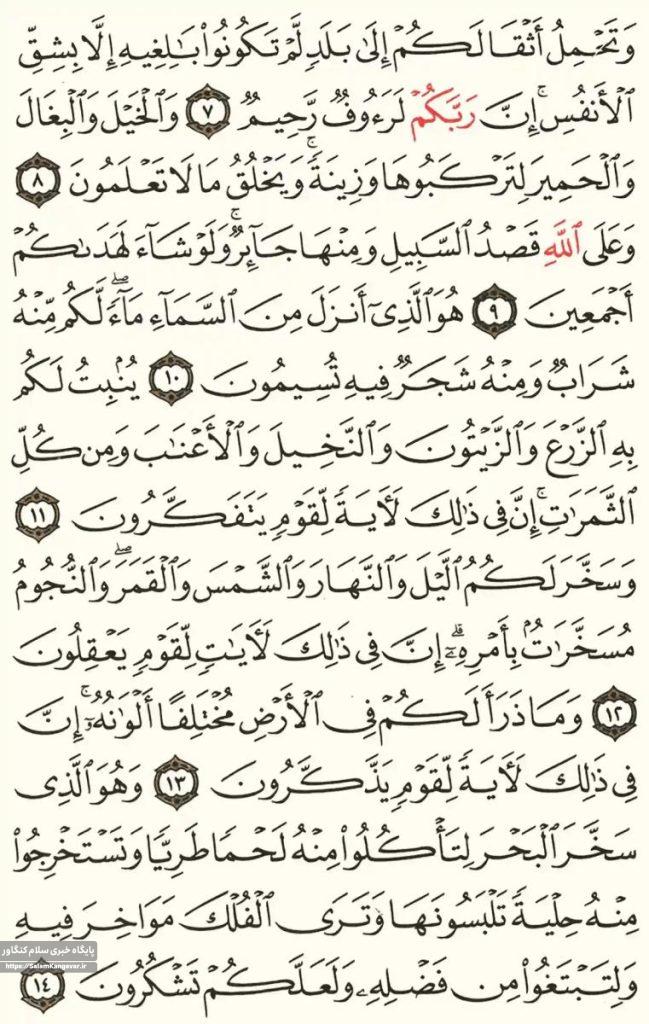 وَتَحْمِلُ أَثْقَالَكُمْ إِلَىٰ بَلَدٍ لَّمْ تَكُونُوا۟ بَٰلِغِيهِ إِلَّا بِشِقِّ
ٱلْأَنفُسِ ۚ إِنَّ رَبَّكُمْ لَرَءُوفٌ رَّحِيمٌ ٧ وَٱلْخَيْلَ وَٱلْبِغَالَ
وَٱلْحَمِيرَ لِتَرْكَبُوهَا وَزِينَةً ۚ وَيَخْلُقُ مَا لَا تَعْلَمُونَ ٨
وَعَلَى ٱللَّهِ قَصْدُ ٱلسَّبِيلِ وَمِنْهَا جَآئِرٌ ۚ وَلَوْ شَآءَ لَهَدَىٰكُمْ
أَجْمَعِينَ ٩ هُوَ ٱلَّذِىٓ أَنزَلَ مِنَ ٱلسَّمَآءِ مَآءً ۖ لَّكُم مِّنْهُ
شَرَابٌ وَمِنْهُ شَجَرٌ فِيهِ تُسِيمُونَ ١٠ يُنۢبِتُ لَكُم
بِهِ ٱلزَّرْعَ وَٱلزَّيْتُونَ وَٱلنَّخِيلَ وَٱلْأَعْنَٰبَ وَمِن كُلِّ
ٱلثَّمَرَٰتِ ۗ إِنَّ فِى ذَٰلِكَ لَءَايَةً لِّقَوْمٍ يَتَفَكَّرُونَ ١١
وَسَخَّرَ لَكُمُ ٱلَّيْلَ وَٱلنَّهَارَ وَٱلشَّمْسَ وَٱلْقَمَرَ ۖ وَٱلنُّجُومُ
مُسَخَّرَٰتٌۢ بِأَمْرِهِۦٓ ۗ إِنَّ فِى ذَٰلِكَ لَءَايَٰتٍ لِّقَوْمٍ يَعْقِلُونَ
١٢ وَمَا ذَرَأَ لَكُمْ فِى ٱلْأَرْضِ مُخْتَلِفًا أَلْوَٰنُهُۥٓ ۗ إِنَّ
فِى ذَٰلِكَ لَءَايَةً لِّقَوْمٍ يَذَّكَّرُونَ ١٣ وَهُوَ ٱلَّذِى
سَخَّرَ ٱلْبَحْرَ لِتَأْكُلُوا۟ مِنْهُ لَحْمًا طَرِيًّا وَتَسْتَخْرِجُوا۟
مِنْهُ حِلْيَةً تَلْبَسُونَهَا وَتَرَى ٱلْفُلْكَ مَوَاخِرَ فِيهِ
وَلِتَبْتَغُوا۟ مِن فَضْلِهِۦ وَلَعَلَّكُمْ تَشْكُرُونَ ١٤
پایگاه خبری سلام کنگاور
https://SalamKangavar.ir